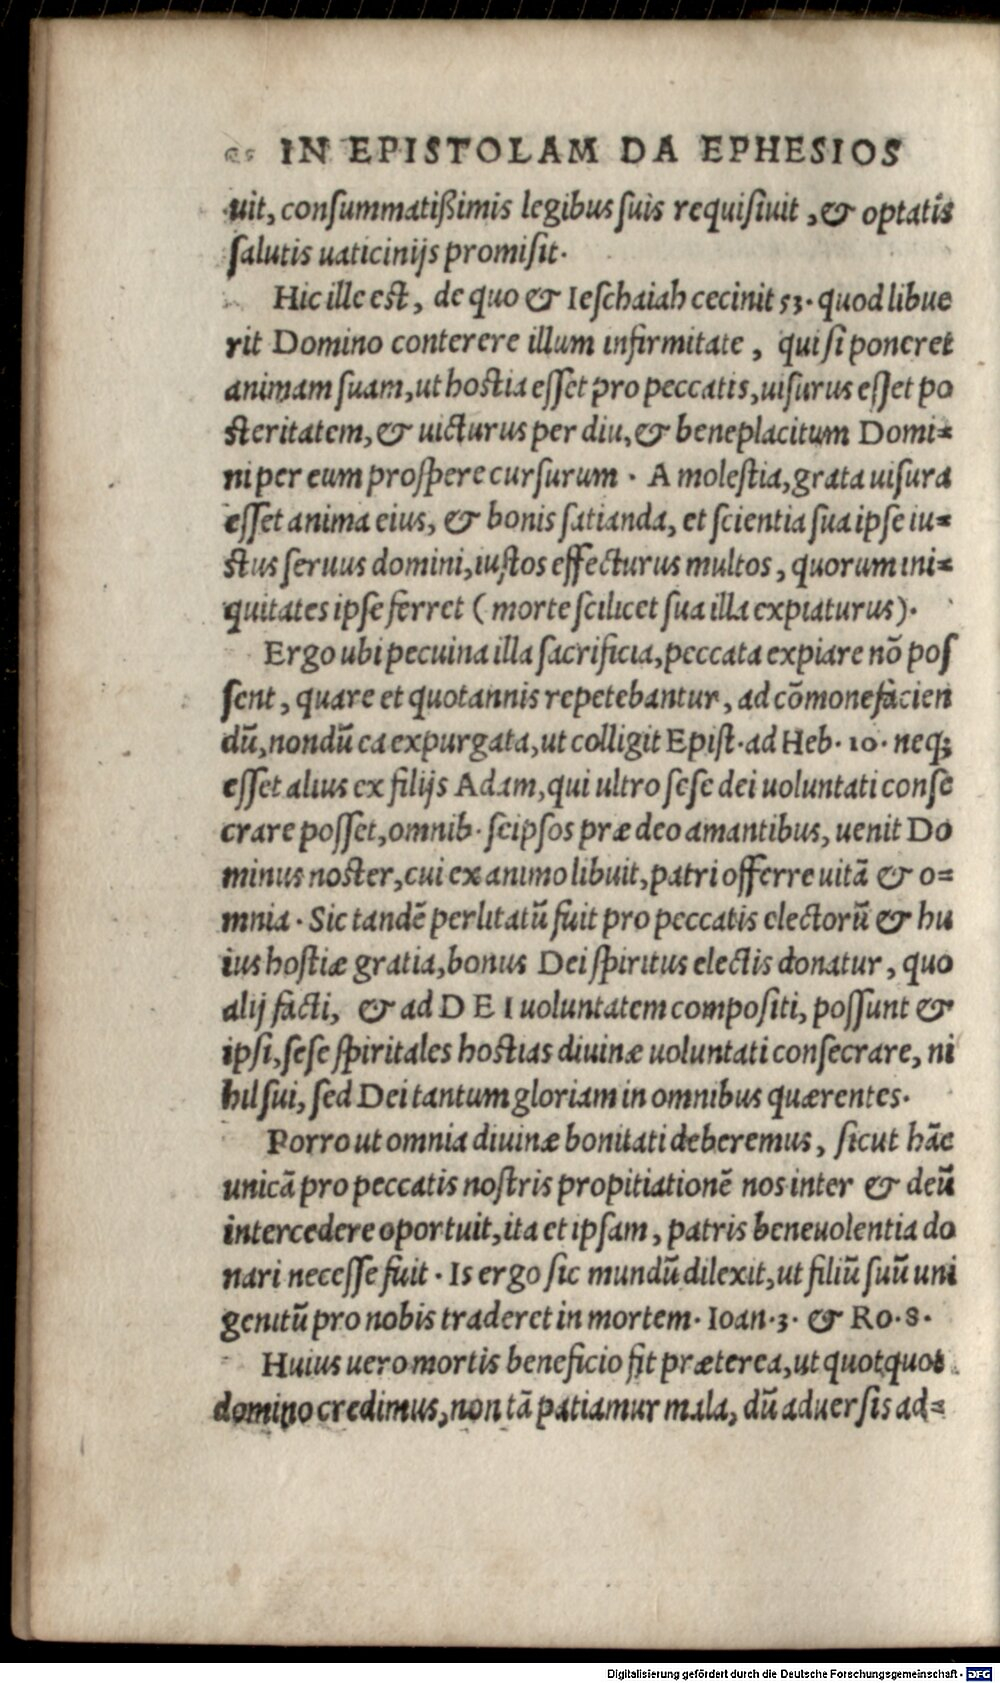 IN EPISTOLAM DA EPHESIOS
uit, conſummatißimis legibus ſuis requiſiuit, & optatis
ſalutis uaticinijs promiſit.
Hic ille est, de quo & Ieſchaiah cecinit 53. quod libue
rit Domino conterere illum infirmitate, qui ſi poneret
animam ſuam, ut hostia eſſet pro peccatis, uiſurus eſſet po
steritatem, & uicturus per diu, & beneplacitum Domi=
ni per eum proſpere curſurum. A moleſtia, grata uiſura
eſſet anima eius, & bonis ſatianda, et ſcientia ſua ipſe iu=
stus ſeruus domini, iuſtos effecturus multos, quorum ini=
quitates ipſe ferret (morte ſcilicet ſua illa expiaturus).
Ergo ubi pecuina illa ſacrificia, peccata expiare nō poſ
ſent, quare et quotannis repetebantur, ad cōmonefacien
dū, nondū ea expurgata, ut colligit Epiſt. ad Heb. 10. neq;
eſſet alius ex filijs Adam, qui ultro ſeſe dei uoluntati conſe
crare poſſet, omnib. ſeipſos præ deo amantibus, uenit Do
minus noster, cui ex animo libuit, patri offerre uitā & o=
mnia. Sic tandē perlitatū fuit pro peccatis electorū & hu
ius hostiæ gratia, bonus Dei ſpiritus electis donatur, quo
alij facti, & ad DEI uoluntatem compoſiti, poſſunt &
ipſi, ſeſe ſpiritales hostias diuinæ uoluntati conſecrare, ni
hil ſui, ſed Dei tantum gloriam in omnibus quærentes.
Porro ut omnia diuinæ bonitati deberemus, ſicut hāc
unicā pro peccatis noſtris propitiationē nos inter & deū
intercedere oportuit, ita et ipſam, patris beneuolentia do
nari neceſſe fuit. Is ergo ſic mundū dilexit, ut filiū ſuū uni
genitū pro nobis traderet in mortem. Ioan. 3. & Ro. 8.
Huius uero mortis beneficio fit præterea, ut quotquot
domino credimus, non tā patiamur mala, dū aduerſis ad=
Digitalisierung gefördert durch die Deutsche Forschungsgemeinschaft - DFG